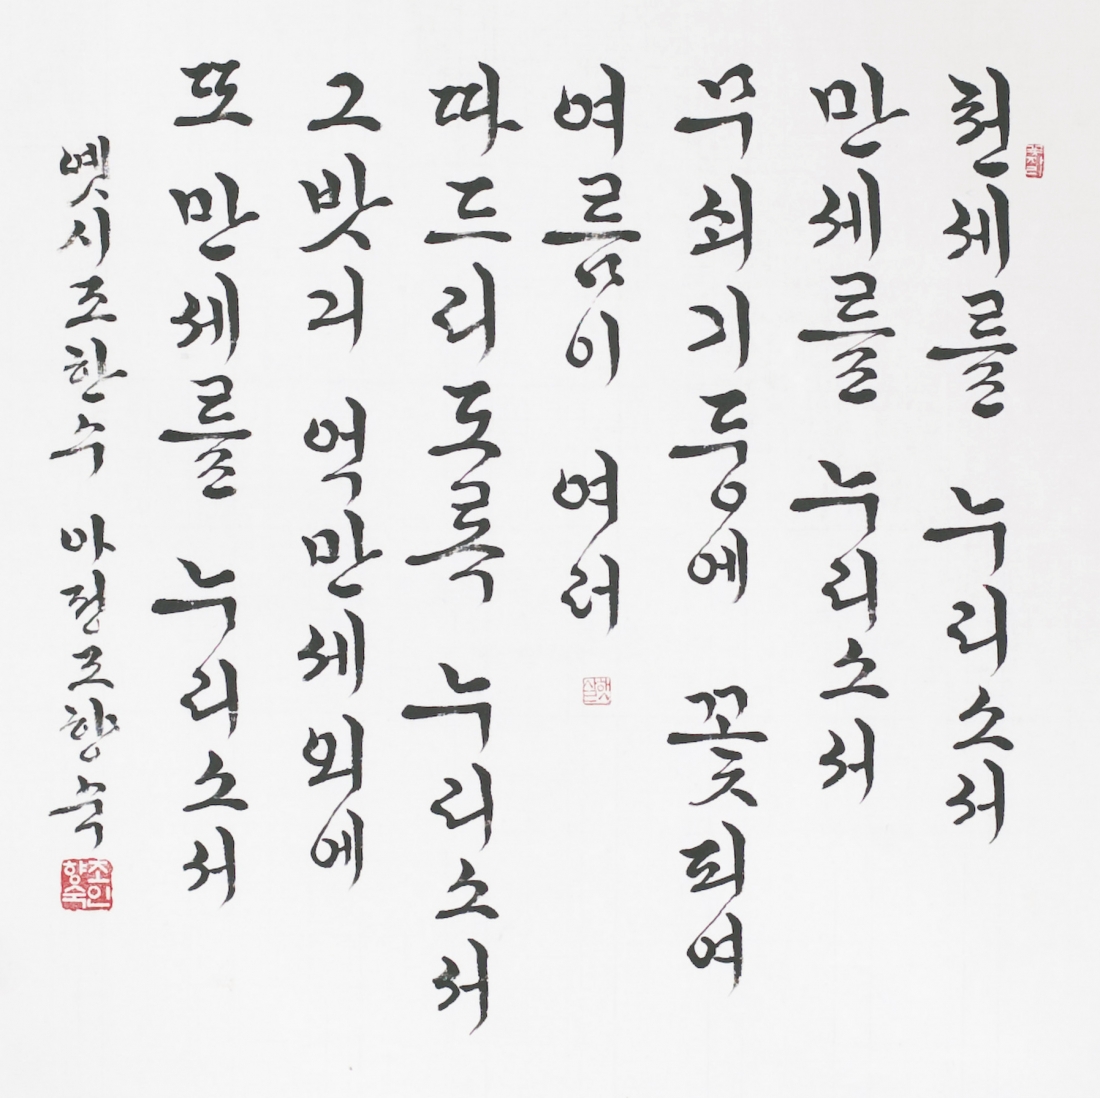 천세를 누리소서
만세를 누리소서
무쇠기둥에 꽃피여
여름이 여러
따드리도록 누리소서
그밧긔 억만세외에
또 만세를 누리소서
옛시조한수 아전조향숙
조인향숙